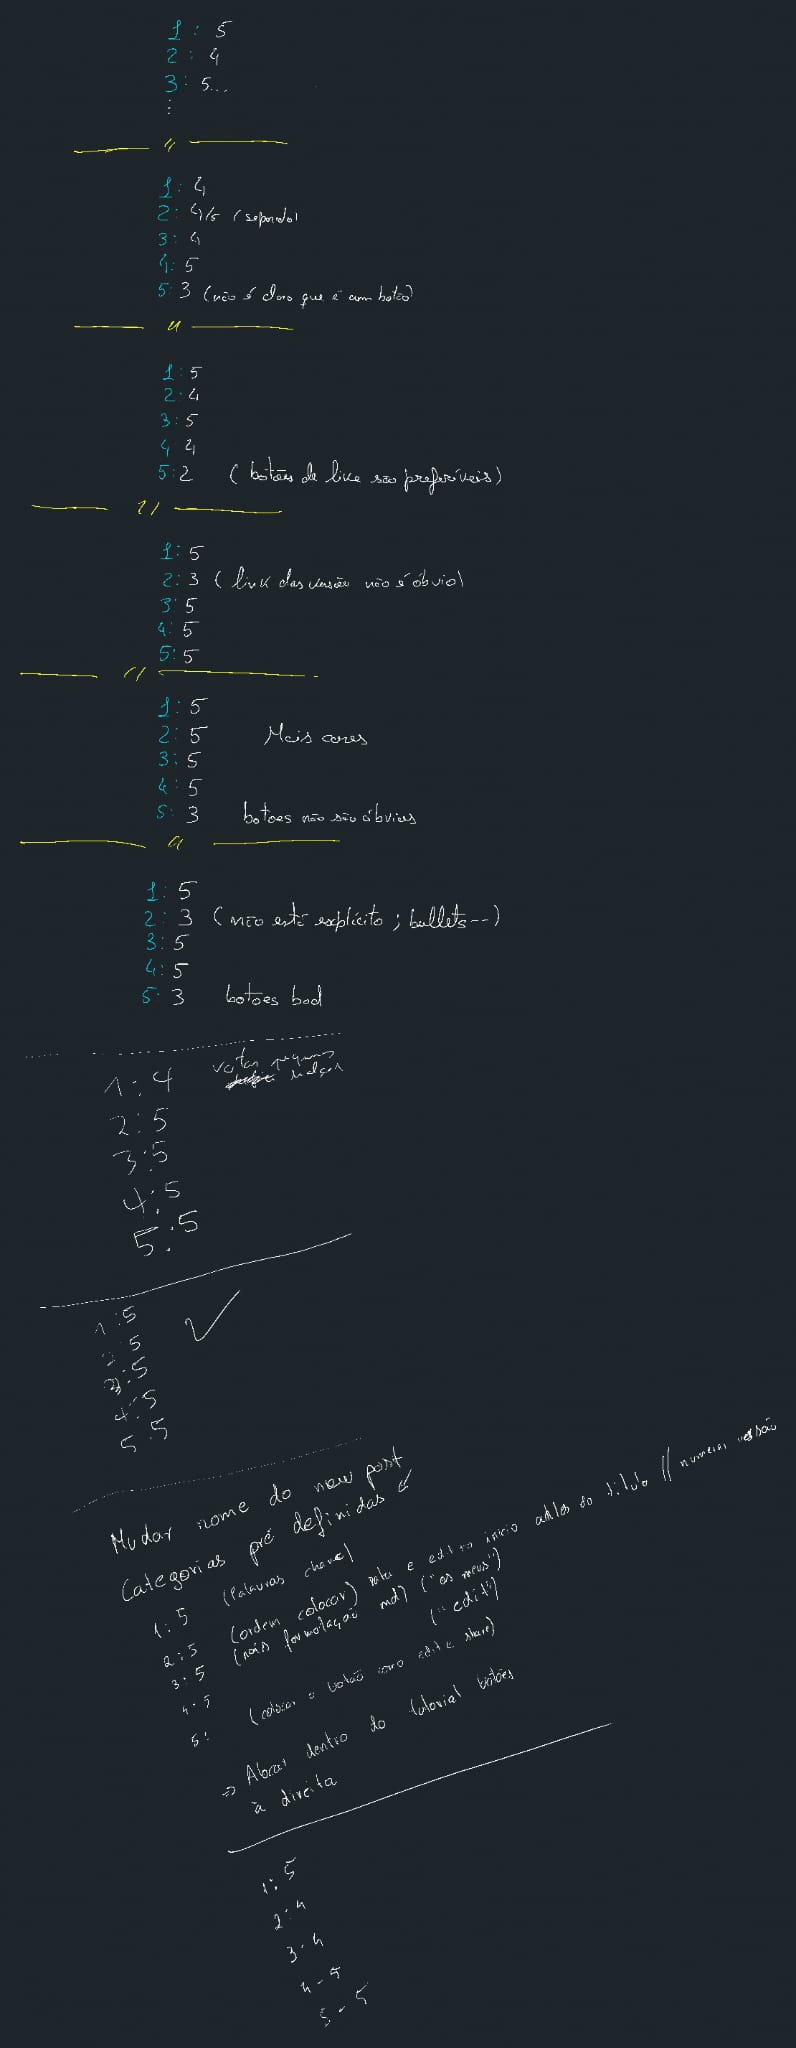 1: 5
2: 4
3: 5...
⋮
//
1: 4
2: 4/5 (separado)
3: 4
4: 5
5: 3 (não é claro que é um botão)
//
1: 5
2: 4
3: 5
4: 4
5: 2 (botões de like são preferíveis)
//
1: 5
2: 3 (link das versão não é óbvio)
3: 5
4: 5
5: 5
//
1: 5
2: 5 Mais cores
3: 5
4: 5
5: 3 botoes não são óbvios
//
1: 5
2: 3 (não está explícito; bullets--)
3: 5
4: 5
5: 3 botoes bad
1: 4 votos
2: 5
3: 5
4: 5
5: 5
1: 5
2: 5
3: 5
4: 5
5: 5
Mudar nome do new post
Categorias pré definidas
1: 5 (Palavras chave)
2: 5 (ordem colocar) data e edit no inicio antes do titulo // numerar versão
3: 5 (mais formatação md) ("os meus")
4: 5 ("edit")
5: (colocar o botão como edit e share)
=> Abrar dentro do tutorial botões
à direita
1: 5
2: 4
3 - 4
4 - 5
5 - 5